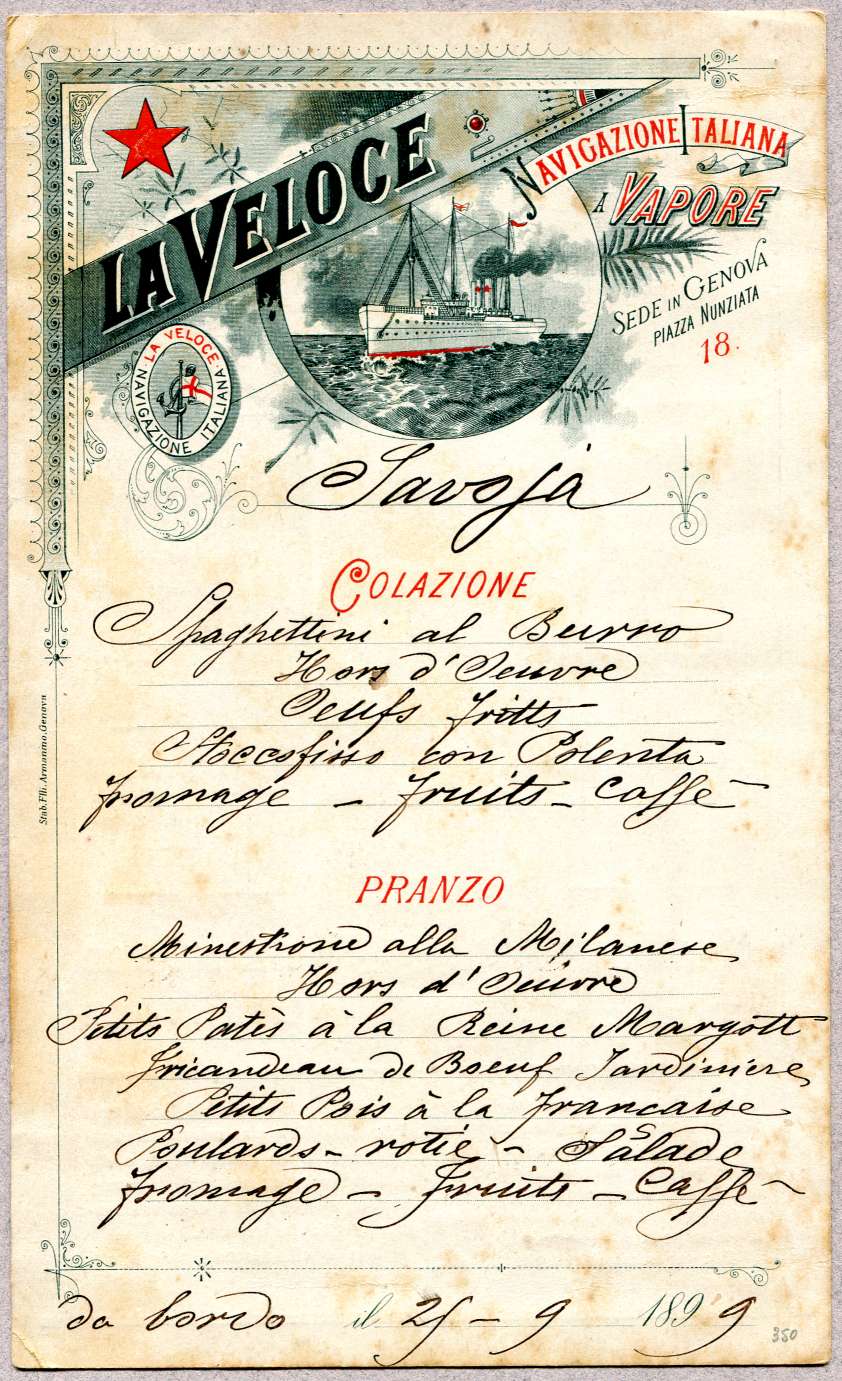 LA VELOCE
NAVIGAZIONE ITALIANA
A VAPORE
SEDE IN GENOVA
PIAZZA NUNZIATA
18.
LA VELOCE · NAVIGAZIONE ITALIANA ·
Savoja
COLAZIONE
Spaghettini al Burro
Hors d'Oeuvre
Oeufs fritts
Stoccofisso con Polenta
fromage - fruits - Caffè
Stab. Flli. Armanino. Genova
PRANZO
Minestrone alla Milanese
Hors d'Oeuvre
Petits Patès à la Reine Margott
fricandeau de Boeuf Jardiniere
Petits Pois à la francaise
Poulards - rotie - Salade
fromage - fruits - Caffè
da bordo il 25 - 9 1899
350